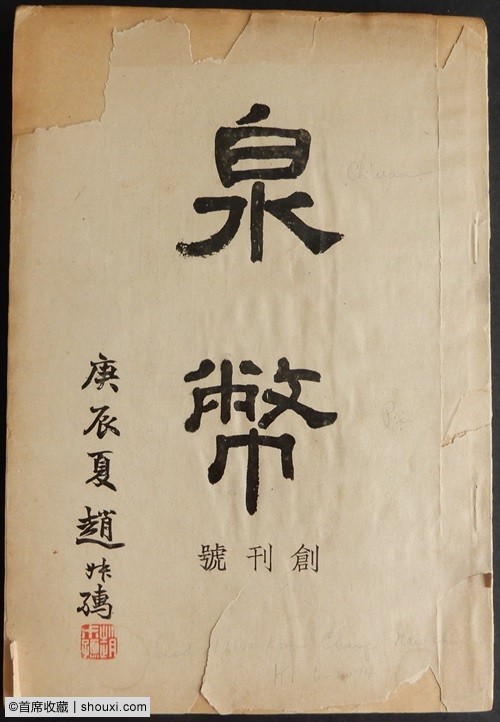 泉幣
創刊號
庚辰夏 趙叔孺
Ch'uan
©首席收藏 | shouxi.com